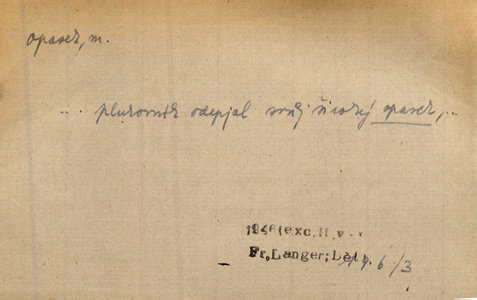 opasek, m.
... plukovník odepjal svůj široký opasek, ...
1946 (exc. H. v.
Fr. Langer; Dět
6/3